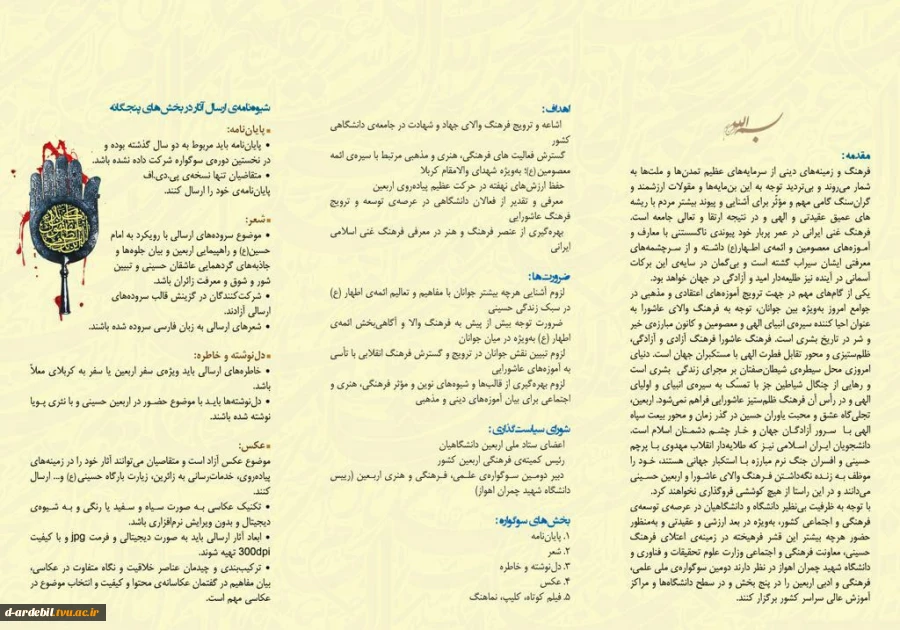 بسم الله
مقدمه:
فرهنگ و زمینه‌های دینی از سرمایه‌های عظیم تمدن‌ها و ملت‌ها به
شمار می‌روند و بی‌تردید توجه به این بن‌مایه‌ها و مقولات ارزشمند و
گران‌سنگ گامی مهم و مؤثر برای آشنایی و پیوند بیشتر مردم با ریشه
های عمیق عقیدتی و الهی و در نتیجه ارتقا و تعالی جامعه است.
فرهنگ غنی ایرانی در عمر پربار خود پیوندی ناگسستنی با معارف و
آموزه‌های معصومین و ائمه‌ی اطهار(ع) داشته و از سرچشمه‌های
معرفتی ایشان سیراب گشته است و بی‌گمان در سایه‌ی این برکات
آسمانی در آینده نیز طلیعه‌دار امید و آزادگی در جهان خواهد بود.
یکی از گام‌های مهم در جهت ترویج آموزه‌های اعتقادی و مذهبی در
جوامع امروز به‌ویژه بین جوانان، توجه به فرهنگ والای عاشورا به
عنوان احیا کننده سیره‌ی انبیای الهی و معصومین و کانون مبارزه‌ی خیر
و شر در تاریخ بشری است. فرهنگ عاشورا فرهنگ آزادی و آزادگی،
ظلم‌ستیزی و محور تقابل فطرت الهی با مستکبران جهان است. دنیای
امروزی محل سیطره‌ی شیطان‌صفتان بر مجرای زندگی بشری است
و رهایی از چنگال شیاطین جز با تمسک به سیره‌ی انبیای و اولیای
الهی و در رأس آن فرهنگ ظلم‌ستیز عاشورایی فراهم نمی‌شود. اربعین،
تجلی‌گاه عشق و محبت یاوران حسین در گذر زمان و محور بیعت سپاه
الهی با سرور آزادگان جهان و خار چشم دشمنان اسلام است.
دانشجویان ایران اسلامی نیز که طلایه‌دار انقلاب مهدوی با پرچم
حسینی و افسران جنگ نرم مبارزه با استکبار جهانی هستند، خود را
موظف به زنده نگه‌داشتن فرهنگ والای عاشورا و اربعین حسینی
می‌دانند و در این راستا از هیچ کوششی فروگذاری نخواهند کرد.
با توجه به ظرفیت بی‌نظیر دانشگاه و دانشگاهیان در عرصه‌ی توسعه‌ی
فرهنگی و اجتماعی کشور، به‌ویژه در بعد ارزشی و عقیدتی و به‌منظور
حضور هرچه بیشتر این قشر فرهیخته در زمینه‌ی اعتلای فرهنگ
حسینی، معاونت فرهنگی و اجتماعی وزارت علوم تحقیقات و فناوری و
دانشگاه شهید چمران اهواز در نظر دارند دومین سوگواره‌ی ملی علمی،
فرهنگی و ادبی اربعین را در پنج بخش و در سطح دانشگاه‌ها و مراکز
آموزش عالی سراسر کشور برگزار کنند.
اهداف:
اشاعه و ترویج فرهنگ والای جهاد و شهادت در جامعه‌ی دانشگاهی
کشور
گسترش فعالیت های فرهنگی، هنری و مذهبی مرتبط با سیره‌ی ائمه
معصومین (ع)؛ به‌ویژه شهدای والامقام کربلا
حفظ ارزش‌های نهفته در حرکت عظیم پیاده‌روی اربعین
معرفی و تقدیر از فعالان دانشگاهی در عرصه‌ی توسعه و ترویج
فرهنگ عاشورایی
بهره‌گیری از عنصر فرهنگ و هنر در معرفی فرهنگ غنی اسلامی
ایرانی
ضرورت‌ها:
لزوم آشنایی هرچه بیشتر جوانان با مفاهیم و تعالیم ائمه‌ی اطهار (ع)
در سبک زندگی حسینی
ضرورت توجه بیش از پیش به فرهنگ والا و آگاهی‌بخش ائمه‌ی
اطهار (ع) به‌ویژه در میان جوانان
لزوم تبیین نقش جوانان در ترویج و گسترش فرهنگ انقلابی با تأسی
به آموزه‌های عاشورایی
لزوم بهره‌گیری از قالب‌ها و شیوه‌های نوین و مؤثر فرهنگی، هنری و
اجتماعی برای بیان آموزه‌های دینی و مذهبی
شورای سیاست‌گذاری:
اعضای ستاد ملی اربعین دانشگاهیان
رئیس کمیته‌ی فرهنگی اربعین کشور
دبیر دومین سوگواره‌ی علمی، فرهنگی و هنری اربعین (رییس
دانشگاه شهید چمران اهواز)
بخش‌های سوگواره:
۱. پایان‌نامه
۲. شعر
۳. دل‌نوشته و خاطره
۴. عکس
۵. فیلم کوتاه، کلیپ، نماهنگ
شیوه‌نامه‌ی ارسال آثار در بخش‌های پنجگانه
▪ پایان‌نامه:
• پایان‌نامه باید مربوط به دو سال گذشته بوده و
در نخستین دوره‌ی سوگواره شرکت داده نشده باشد.
• متقاضیان تنها نسخه‌ی پی.دی.اف
پایان‌نامه‌ی خود را ارسال کنند.
▪ شعر:
• موضوع سروده‌های ارسالی با رویکرد به امام
حسین(ع) و راهپیمایی اربعین و بیان جلوه‌ها و
جاذبه‌های گردهمایی عاشقان حسینی و تبیین
شور و شوق و معرفت زائران باشد.
• شرکت‌کنندگان در گزینش قالب سروده‌های
ارسالی آزادند.
• شعرهای ارسالی به زبان فارسی سروده شده باشند.
▪ دل‌نوشته و خاطره:
• خاطره‌های ارسالی باید ویژه‌ی سفر اربعین یا سفر به کربلای معلاً
باشد.
• دل‌نوشته‌ها باید با موضوع حضور در اربعین حسینی و با نثری پویا
نوشته شده باشند.
▪ عکس:
موضوع عکس آزاد است و متقاضیان می‌توانند آثار خود را در زمینه‌های
پیاده‌روی، خدمات‌رسانی به زائرین، زیارت بارگاه حسینی (ع) و... ارسال
کنند.
• تکنیک عکاسی به صورت سیاه و سفید یا رنگی و به شیوه‌ی
دیجیتال و بدون ویرایش نرم‌افزاری باشد.
• ابعاد آثار ارسالی باید به صورت دیجیتالی و فرمت jpg و با کیفیت
300dpi تهیه شوند.
• ترکیب‌بندی و چیدمان عناصر خلاقیت و نگاه متفاوت در عکاسی،
بیان مفاهیم در گفتمان عکاسانه‌ی محتوا و کیفیت و انتخاب موضوع در
عکاسی مهم است.
d-ardebil.tvu.ac.ir